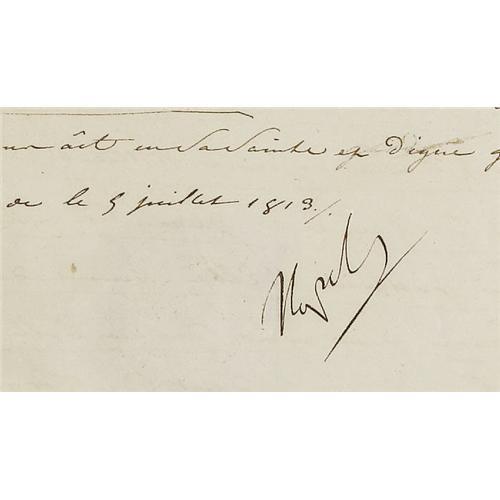 un ait en Sa Sainte et Digne g
de le 5 juillet 1813 /.
Napol